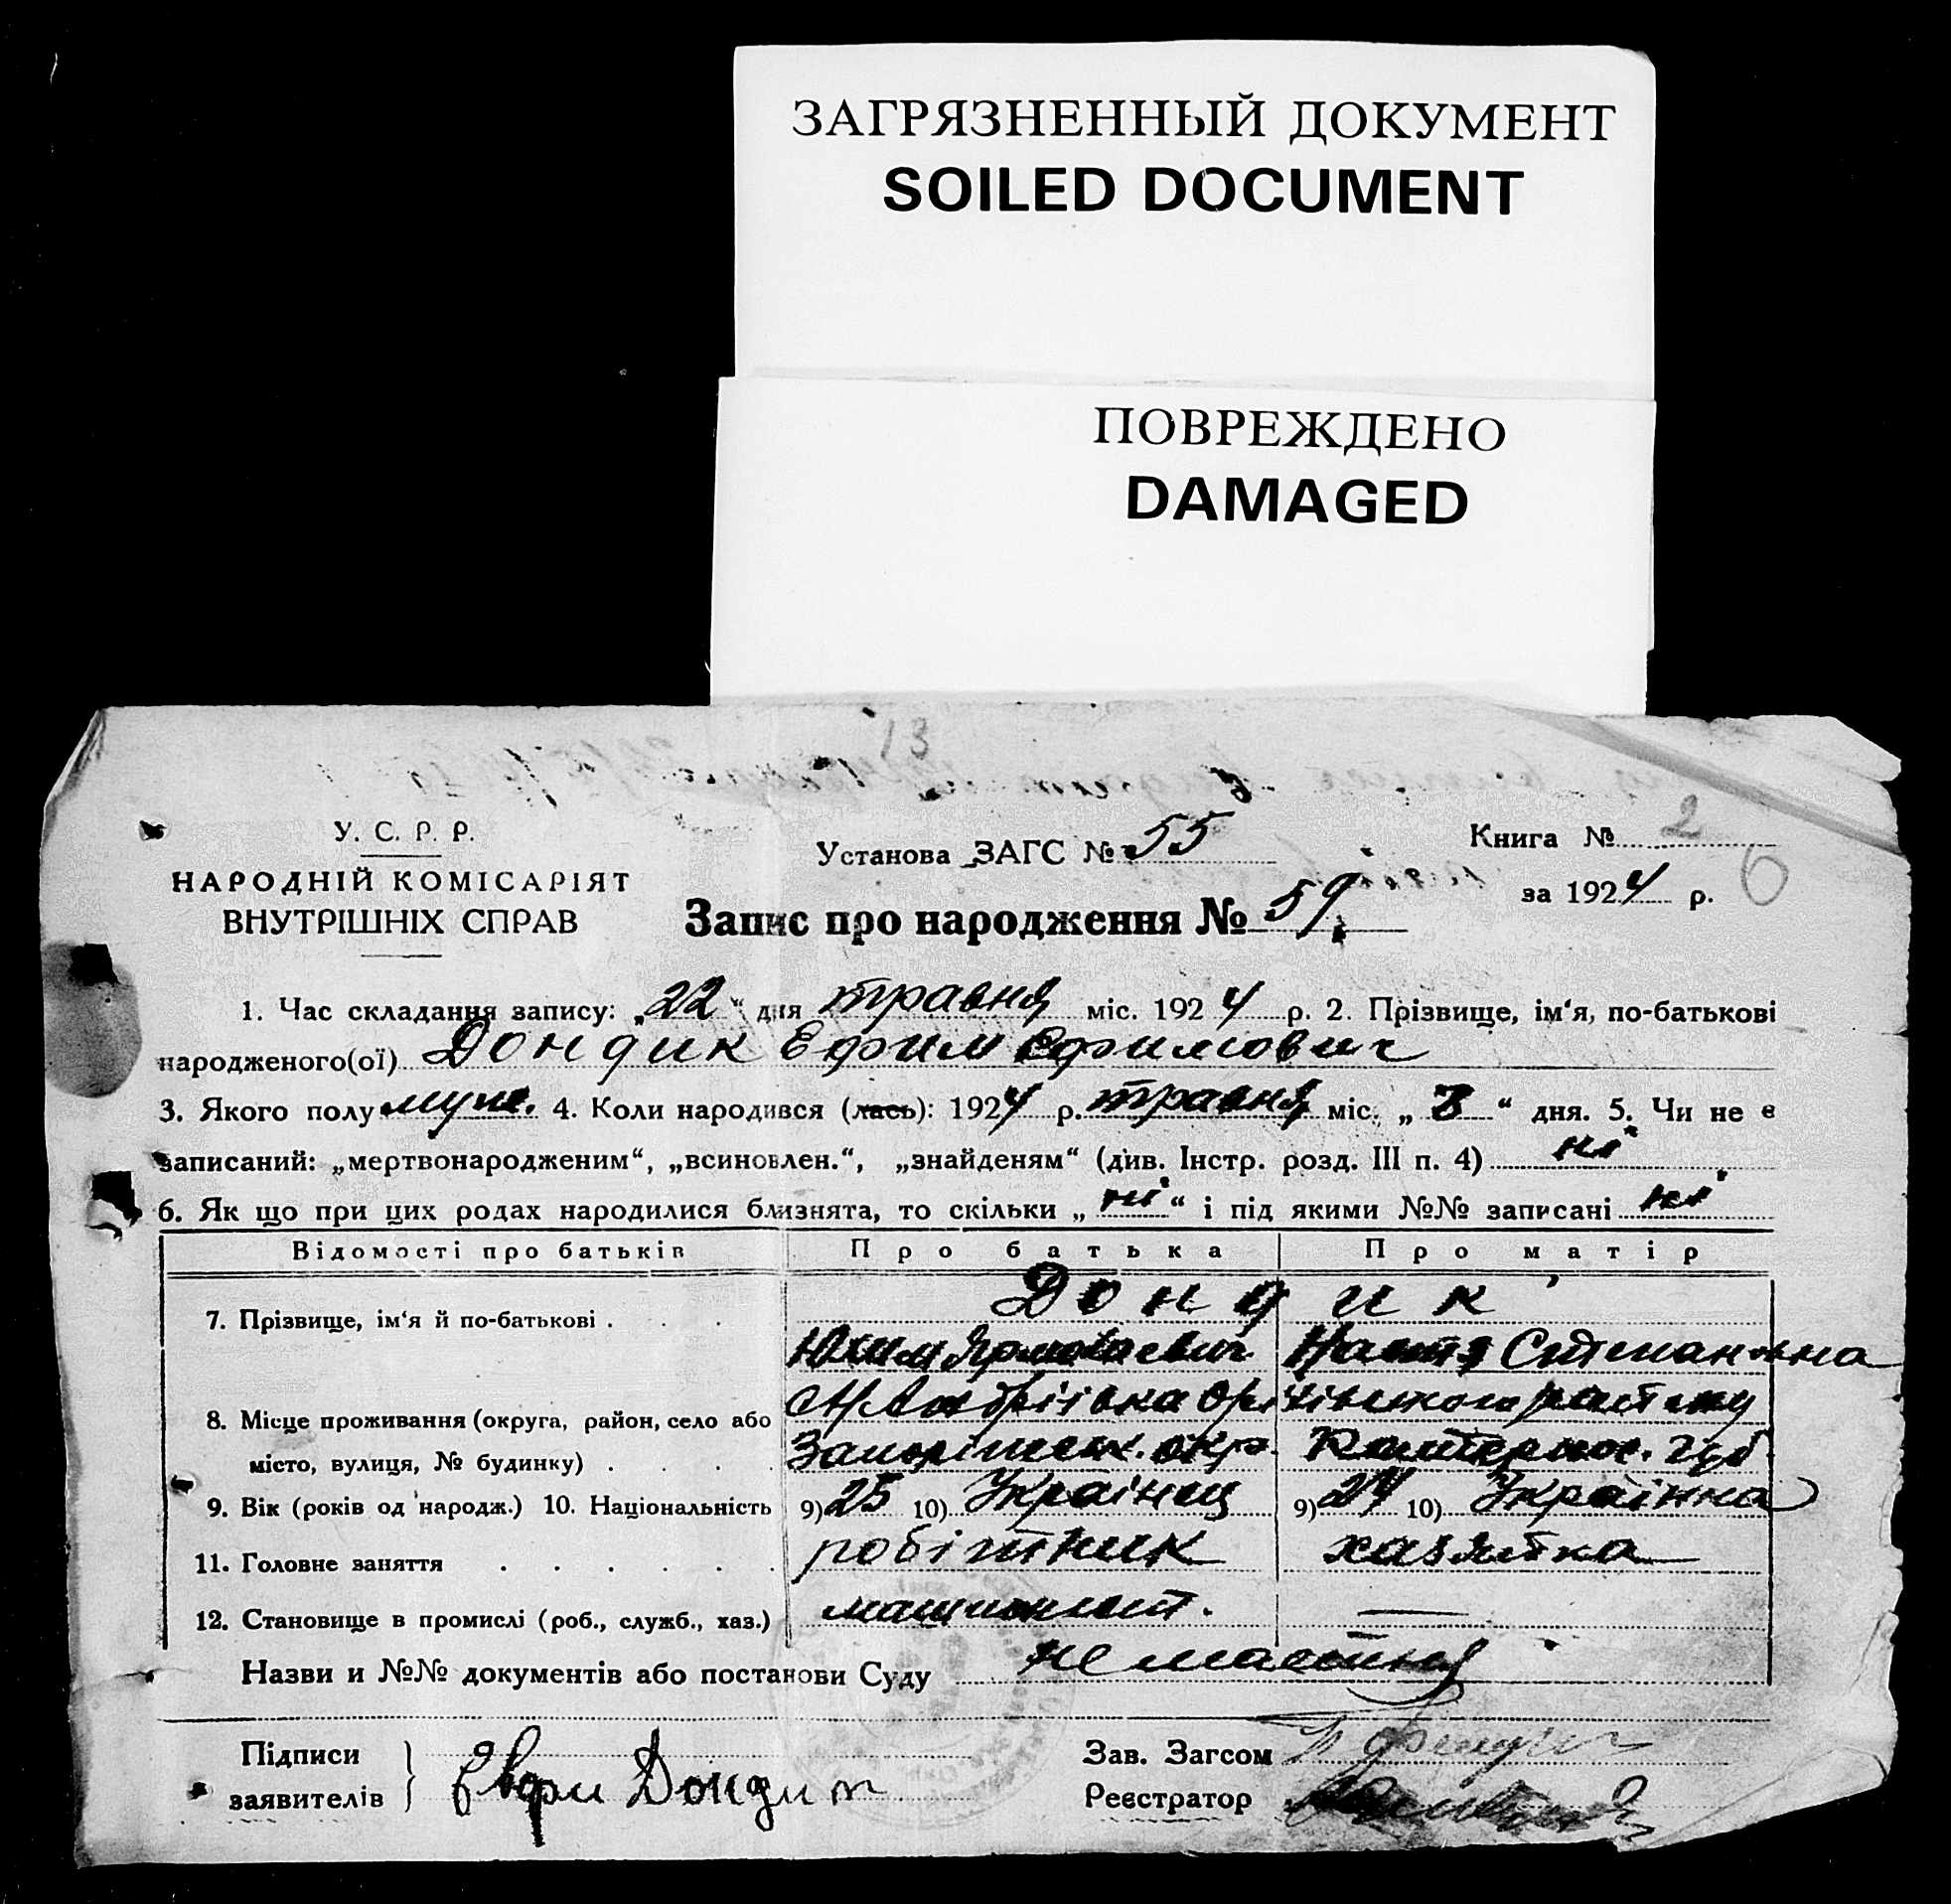 ЗАГРЯЗНЕННЫЙ ДОКУМЕНТ
SOILED DOCUMENT
ПОВРЕЖДЕНО
DAMAGED
13
У. С. Р. Р.
НАРОДНІЙ КОМІСАРІЯТ
ВНУТРІШНІХ СПРАВ
Установа ЗАГС № 55
Книга № 2
за 1924 р.
6
Запис про народження № 59
1. Час складання запису: „22“ дня травня міс. 1924 р. 2. Прізвище, ім‘я, по-батькові
народженого(ої) Дондик Ефим Ефимович
3. Якого полу муж. 4. Коли народився (лась): 1924 р. травня міс. „3“ дня. 5. Чи не є
записаний: „мертвонародженим“, „всиновлен.“, „знайденям“ (див. Інстр. розд. III п. 4) ні
6. Як що при цих родах народилися близнята, то скільки „ні“ і під якими №№ записані ні
Відомості про батьків Про батька Про матір
Дондик
7. Прізвище, ім‘я й по-батькові . . .
Юхим Настя Степановна
8. Місце проживання (округа, район, село або
місто, вулиця, № будинку) . . . .
окр. губ.
9. Вік (років од народж.) 10. Національність 9) 25 10) Українец 9) 24 10) Українка
11. Головне заняття . . . . . . робітник хазяйка
12. Становище в промислі (роб., служб., хаз.) —
Назви и №№ документів або постанови Суду
Підписи
заявителів } Дондик
Зав. Загсом
Реєстратор